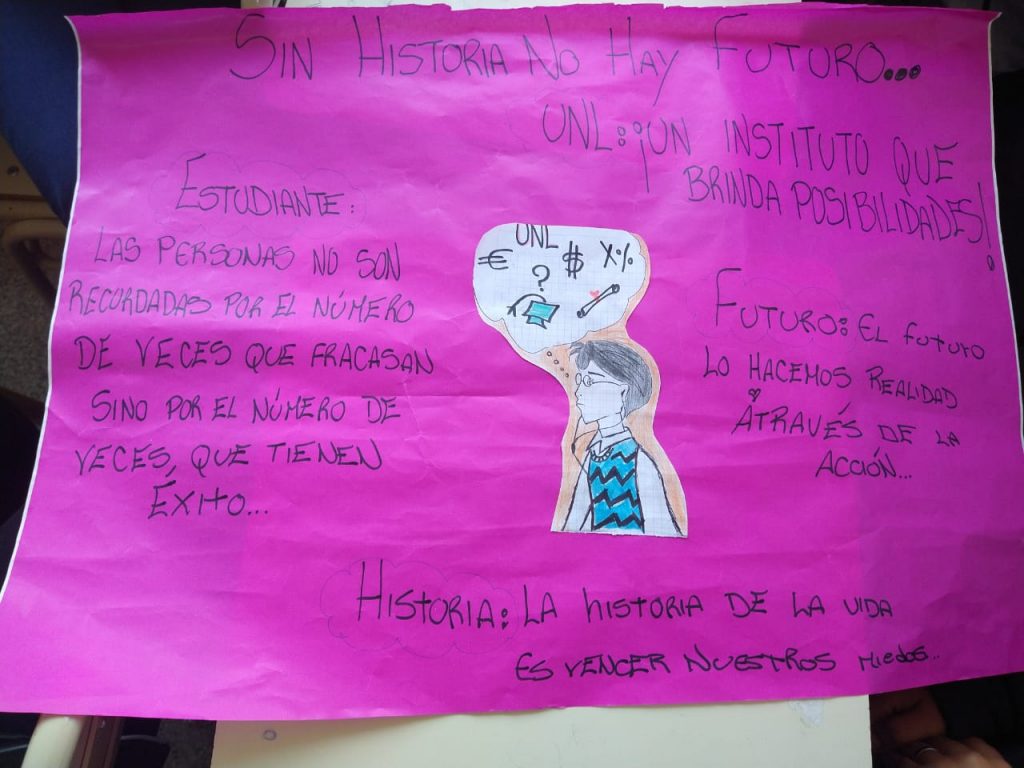 SIN HISTORIA NO HAY FUTURO...
UNL: ¡UN INSTITUTO QUE
BRINDA POSIBILIDADES!
ESTUDIANTE:
LAS PERSONAS NO SON
RECORDADAS POR EL NÚMERO
DE VECES QUE FRACASAN
SINO POR EL NÚMERO DE
VECES, QUE TIENEN
ÉXITO...
UNL
€ $ X%
?
FUTURO: EL FUTURO
LO HACEMOS REALIDAD
ATRAVÉS DE LA
ACCIÓN...
HISTORIA: LA HISTORIA DE LA VIDA
ES VENCER NUESTROS MIEDOS..